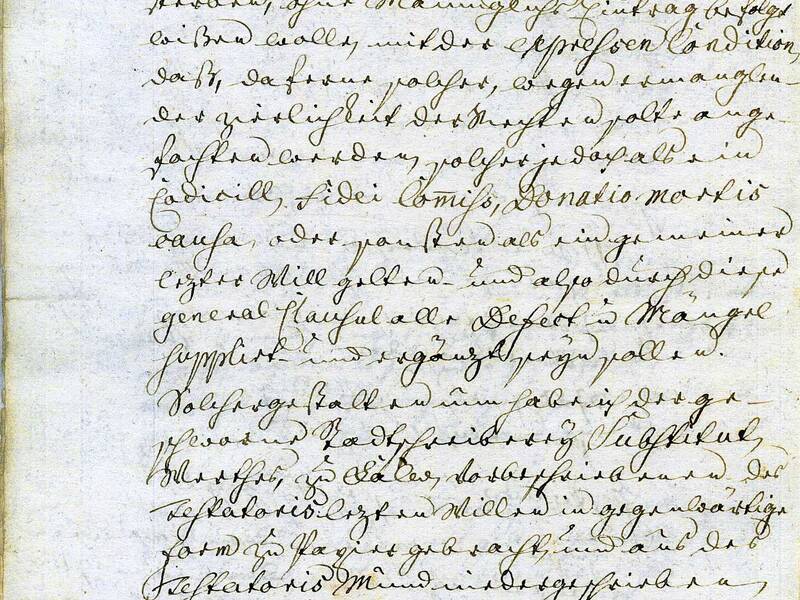 sterben, ohne Männiglichs Eintrag befolgt
wißen wolle, mit der expressen Condition,
daß, daferne solcher, wegen ermanglen-
der zierlichkeit der Rechten solte ange-
fochten werden, solcher jedoch als ein
Codicill, Fidei Com̅iss, Donatio mortis
causa, oder sonsten als ein gemeiner
lezter Will gelten- und also durch diese
general Clausul alle Defect u Mängel
supplirt- und ergänzt seyn sollen.
Solchergestalten nun habe ich der ge-
schworne Stadtschreiberey Substitut,
Werthes, zu vorbeschriebenen des
Testatoris lezten Willen in gegenwärtige
form zu Papier gebracht, und aus des
Testatoris Mund niedergeschrieben,